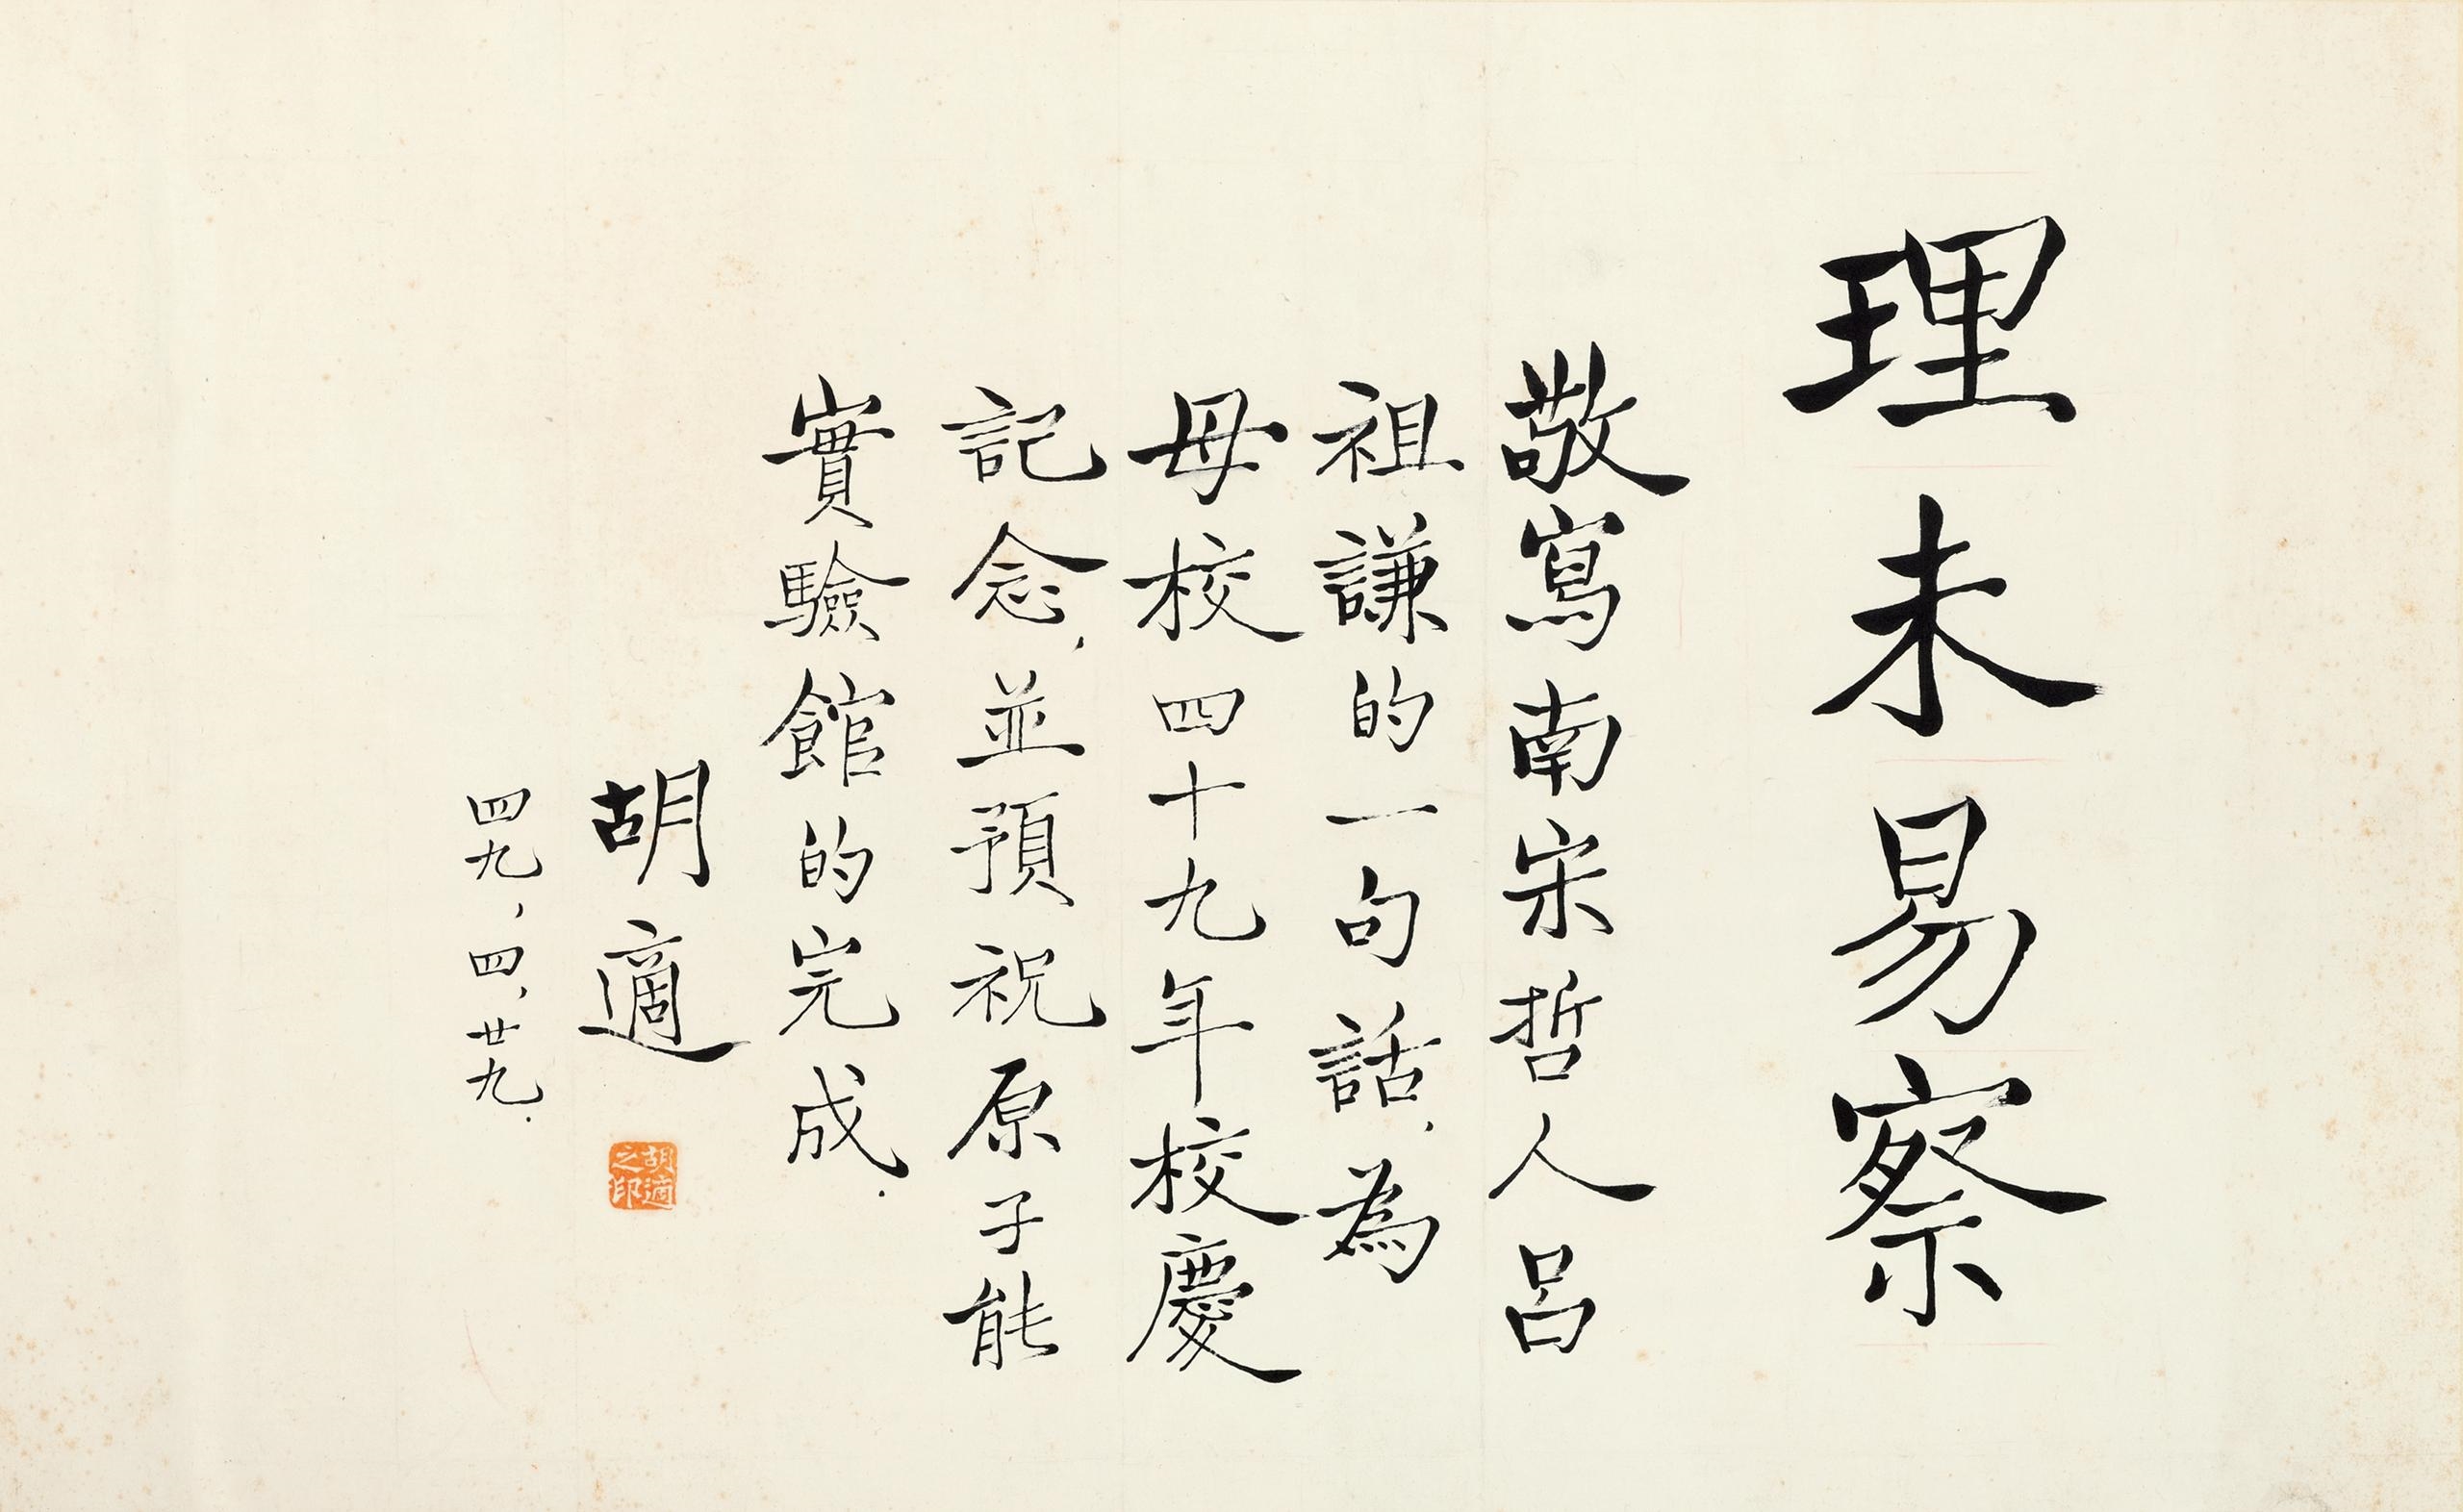 理未易察
敬寫南宋哲人呂
祖謙的一句話，為
母校四十九年校慶
記念，並預祝原子能
實驗館的完成．
胡適
四九，四，廿九．
胡適
之印